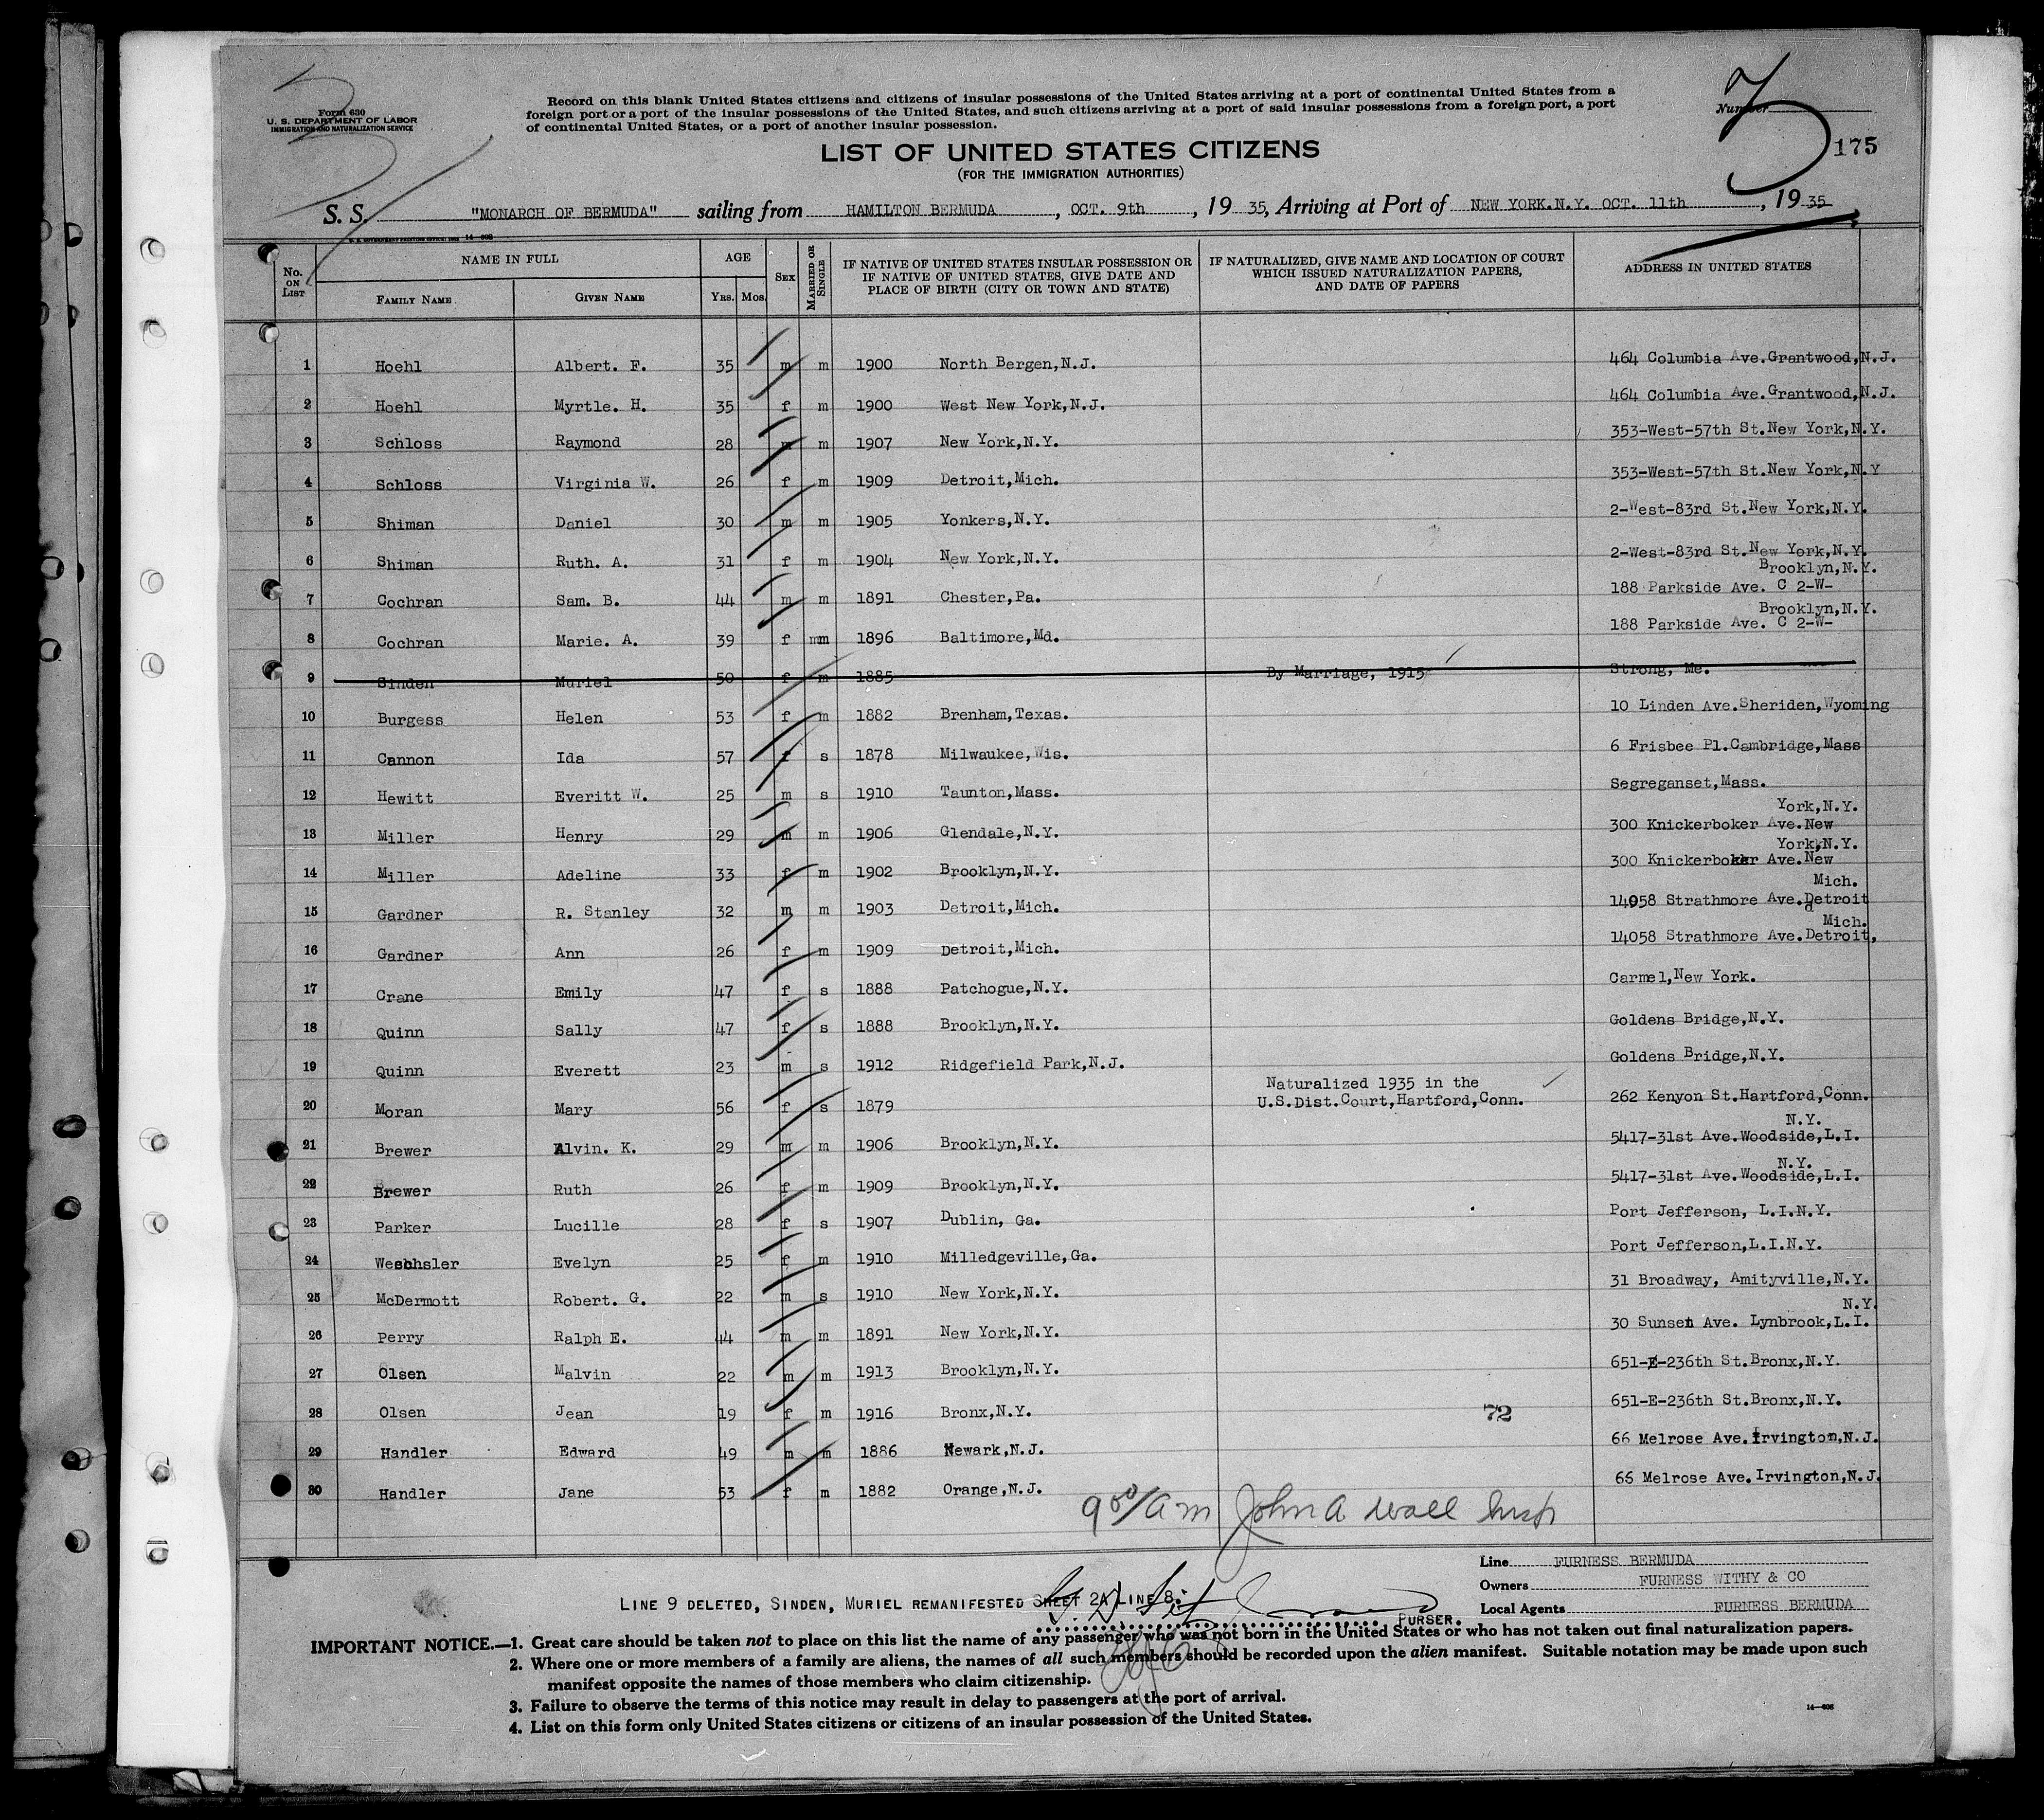 Form 630
U. S. DEPARTMENT OF LABOR
IMMIGRATION AND NATURALIZATION SERVICE
Record on this blank United States citizens and citizens of insular possessions of the United States arriving at a port of continental United States from a
foreign port or a port of the insular possessions of the United States, and such citizens arriving at a port of said insular possessions from a foreign port, a port
of continental United States, or a port of another insular possession.
Number
3
175
LIST OF UNITED STATES CITIZENS
(FOR THE IMMIGRATION AUTHORITIES)
S. S. "MONARCH OF BERMUDA" sailing from HAMILTON BERMUDA, OCT. 9th, 19 35, Arriving at Port of NEW YORK.N.Y. OCT. 11th, 19 35
No. ON LIST NAME IN FULL FAMILY NAME GIVEN NAME AGE YRS. MOS. SEX MARRIED OR SINGLE IF NATIVE OF UNITED STATES INSULAR POSSESSION OR IF NATIVE OF UNITED STATES, GIVE DATE AND PLACE OF BIRTH (CITY OR TOWN AND STATE) IF NATURALIZED, GIVE NAME AND LOCATION OF COURT WHICH ISSUED NATURALIZATION PAPERS, AND DATE OF PAPERS ADDRESS IN UNITED STATES
1 Hoehl Albert. F. 35 m m 1900 North Bergen,N.J. 464 Columbia Ave.Grantwood,N.J.
2 Hoehl Myrtle. H. 35 f m 1900 West New York,N.J. 464 Columbia Ave.Grantwood,N.J.
3 Schloss Raymond 28 m m 1907 New York,N.Y. 353-West-57th St.New York,N.Y.
4 Schloss Virginia W. 26 f m 1909 Detroit,Mich. 353-West-57th St.New York,N.Y
5 Shiman Daniel 30 m m 1905 Yonkers,N.Y. 2-West-83rd St.New York,N.Y.
6 Shiman Ruth. A. 31 f m 1904 New York,N.Y. 2-West-83rd St.New York,N.Y.
Brooklyn,N.Y.
7 Cochran Sam. B. 44 m m 1891 Chester,Pa. 188 Parkside Ave. C 2-W-
Brooklyn,N.Y.
8 Cochran Marie. A. 39 f mm 1896 Baltimore,Md. 188 Parkside Ave. C 2-W-
9 Sinden Muriel 50 f m 1885 By Marriage, 1915 Strong, Me.
10 Burgess Helen 53 f m 1882 Brenham,Texas. 10 Linden Ave.Sheriden,Wyoming
11 Cannon Ida 57 f s 1878 Milwaukee,Wis. 6 Frisbee Pl.Cambridge,Mass
12 Hewitt Everitt W. 25 m s 1910 Taunton,Mass. Segreganset,Mass.
York,N.Y.
13 Miller Henry 29 m m 1906 Glendale,N.Y. 300 Knickerboker Ave.New
York,N.Y.
14 Miller Adeline 33 f m 1902 Brooklyn,N.Y. 300 Knickerboker Ave.New
Mich.
15 Gardner R. Stanley 32 m m 1903 Detroit,Mich. 14058 Strathmore Ave.Detroit
Mich.
16 Gardner Ann 26 f m 1909 Detroit,Mich. 14058 Strathmore Ave.Detroit,
17 Crane Emily 47 f s 1888 Patchogue,N.Y. Carmel,New York.
18 Quinn Sally 47 f s 1888 Brooklyn,N.Y. Goldens Bridge,N.Y.
19 Quinn Everett 23 m s 1912 Ridgefield Park,N.J. Goldens Bridge,N.Y.
Naturalized 1935 in the
20 Moran Mary 56 f s 1879 U.S.Dist.Court,Hartford,Conn. 262 Kenyon St.Hartford,Conn.
N.Y.
21 Brewer Alvin. K. 29 m m 1906 Brooklyn,N.Y. 5417-31st Ave.Woodside,L.I.
N.Y.
22 Brewer Ruth 26 f m 1909 Brooklyn,N.Y. 5417-31st Ave.Woodside,L.I.
23 Parker Lucille 28 f s 1907 Dublin, Ga. Port Jefferson, L.I.N.Y.
24 Wechsler Evelyn 25 f m 1910 Milledgeville,Ga. Port Jefferson,L.I.N.Y.
25 McDermott Robert. G. 22 m s 1910 New York,N.Y. 31 Broadway, Amityville,N.Y.
N.Y.
26 Perry Ralph E. 44 m m 1891 New York,N.Y. 30 Sunset Ave. Lynbrook,L.I.
27 Olsen Malvin 22 m m 1913 Brooklyn,N.Y. 651-E-236th St.Bronx,N.Y.
28 Olsen Jean 19 f m 1916 Bronx,N.Y. 72 651-E-236th St.Bronx,N.Y.
29 Handler Edward 49 m m 1886 Newark,N.J. 66 Melrose Ave.Irvington,N.J.
30 Handler Jane 53 f m 1882 Orange,N.J. 66 Melrose Ave.Irvington,N.J.
9 00/am John A Wall Insp
Line FURNESS BERMUDA
Owners FURNESS WITHY & CO
Local Agents FURNESS BERMUDA
LINE 9 DELETED, SINDEN, MURIEL REMANIFESTED SHEET 2A LINE 8.
PURSER.
IMPORTANT NOTICE.—1. Great care should be taken not to place on this list the name of any passenger who was not born in the United States or who has not taken out final naturalization papers.
2. Where one or more members of a family are aliens, the names of all such members should be recorded upon the alien manifest. Suitable notation may be made upon such
manifest opposite the names of those members who claim citizenship.
3. Failure to observe the terms of this notice may result in delay to passengers at the port of arrival.
4. List on this form only United States citizens or citizens of an insular possession of the United States.
14—608